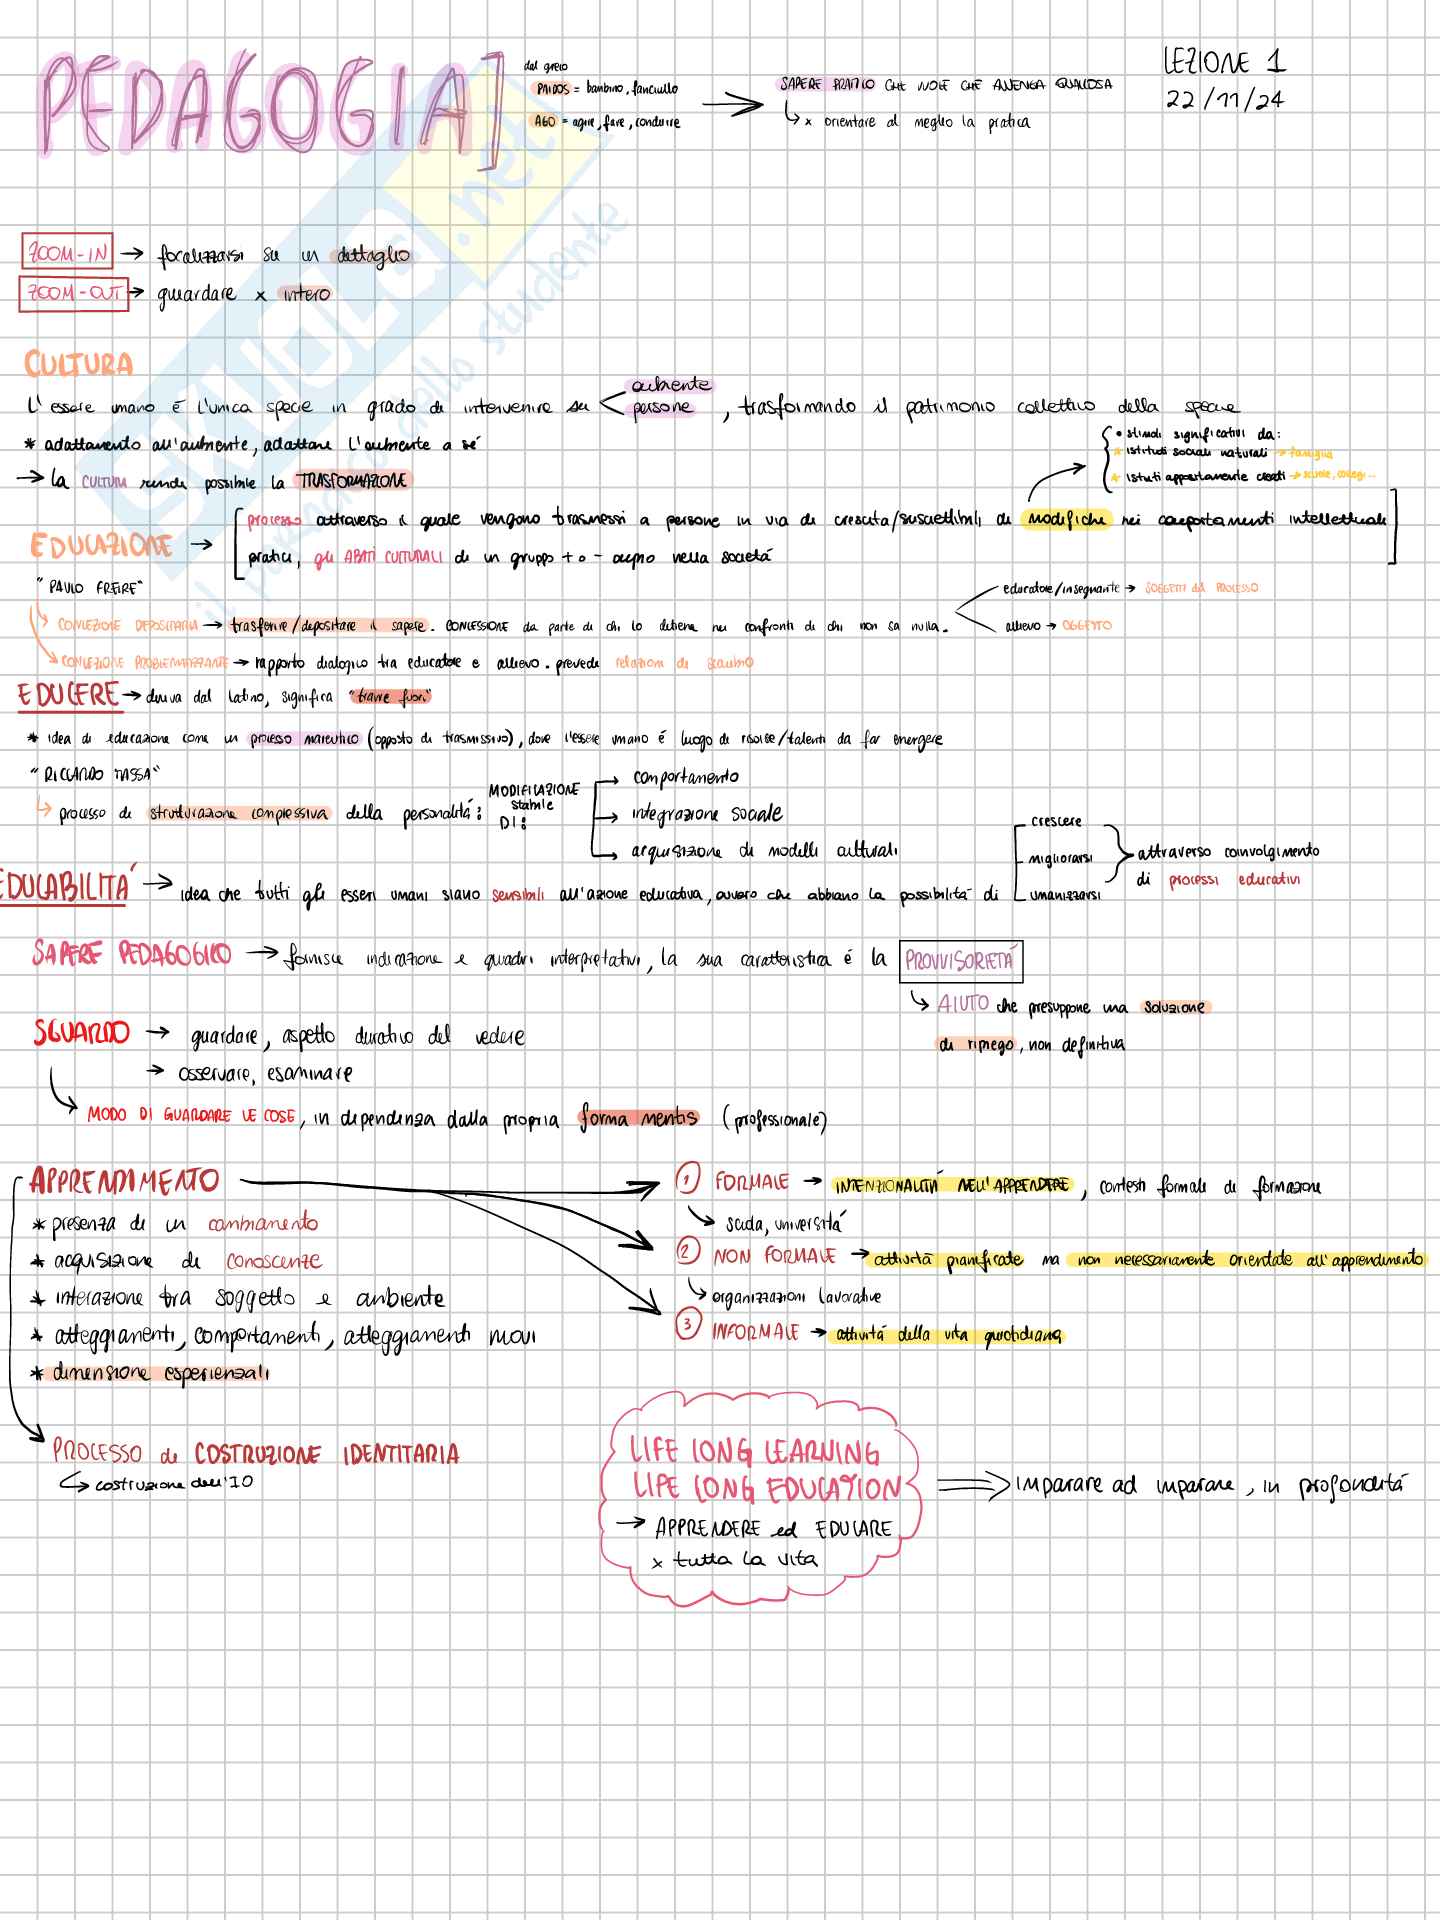 PEDAGOGIA]
dal greco
PAIDOS = bambino, fanciullo
AGO = agire, fare, condurre
SAPERE PRATICO CHE VUOLE CHE AVVENGA QUALCOSA
x orientare al meglio la pratica
LEZIONE 1
22/11/24
ZOOM-IN → focalizzarsi su un dettaglio
ZOOM-OUT → guardare x intero
CULTURA
L'essere umano é l'unica specie in grado di intervenire su < ambiente
persone , trasformando il patrimonio collettivo della specie
* adattamento all'ambiente, adattare l'ambiente a sé
→ la CULTURA rende possibile la TRASFORMAZIONE
• stimoli significativi da:
* istituti sociali naturali → famiglia
* istituti appositamente creati → scuole, collegi...
EDUCAZIONE → [processo attraverso il quale vengono trasmessi a persone in via di crescita/suscettibili di modifiche nei comportamenti intellettuali
pratici, gli ABITI CULTURALI di un gruppo + o - ampio nella società]
"PAULO FREIRE"
CONCEZIONE DEPOSITARIA → trasferire/depositare il sapere. CONCESSIONE da parte di chi lo detiene nei confronti di chi non sa nulla.
educatore/insegnante → SOGGETTI del PROCESSO
allievo → OGGETTO
CONCEZIONE PROBLEMATIZZANTE → rapporto dialogico tra educatore e allievo. prevede relazioni di scambio
EDUCERE → deriva dal latino, significa "trarre fuori"
* idea di educazione come un processo maieutico (opposto di trasmissivo), dove l'essere umano é luogo di risorse/talenti da far emergere
"RICCARDO MASSA"
processo di strutturazione complessiva della personalitá: MODIFICAZIONE
stabile
DI:
comportamento
integrazione sociale
acquisizione di modelli culturali
EDUCABILITÁ → idea che tutti gli esseri umani siano sensibili all'azione educativa, ovvero che abbiano la possibilitá di
crescere
migliorarsi
umanizzarsi
attraverso coinvolgimento
di processi educativi
SAPERE PEDAGOGICO → fornisce indicazione e quadri interpretativi, la sua caratteristica é la PROVVISORIETÁ
AIUTO che presuppone una soluzione
di ripiego, non definitiva
SGUARDO → guardare, aspetto durativo del vedere
→ osservare, esaminare
MODO DI GUARDARE LE COSE, in dependenza dalla propria forma mentis (professionale)
APPRENDIMENTO
* presenza di un cambiamento
* acquisizione di conoscenze
* interazione tra soggetto e ambiente
* atteggiamenti, comportamenti, atteggiamenti nuovi
* dimensione esperienziali
PROCESSO di COSTRUZIONE IDENTITARIA
costruzione dell'IO
1 FORMALE → INTENZIONALITÁ NELL'APPRENDERE, contesti formali di formazione
scuola, universitá
2 NON FORMALE → attivitá pianificate ma non necessariamente orientate all'apprendimento
organizzazioni lavorative
3 INFORMALE → attivitá della vita quotidiana
LIFE LONG LEARNING
LIFE LONG EDUCATION
→ APPRENDERE ed EDUCARE
x tutta la vita
⇒ imparare ad imparare, in profonditá
SKUOLA.net
il paradiso dello studente